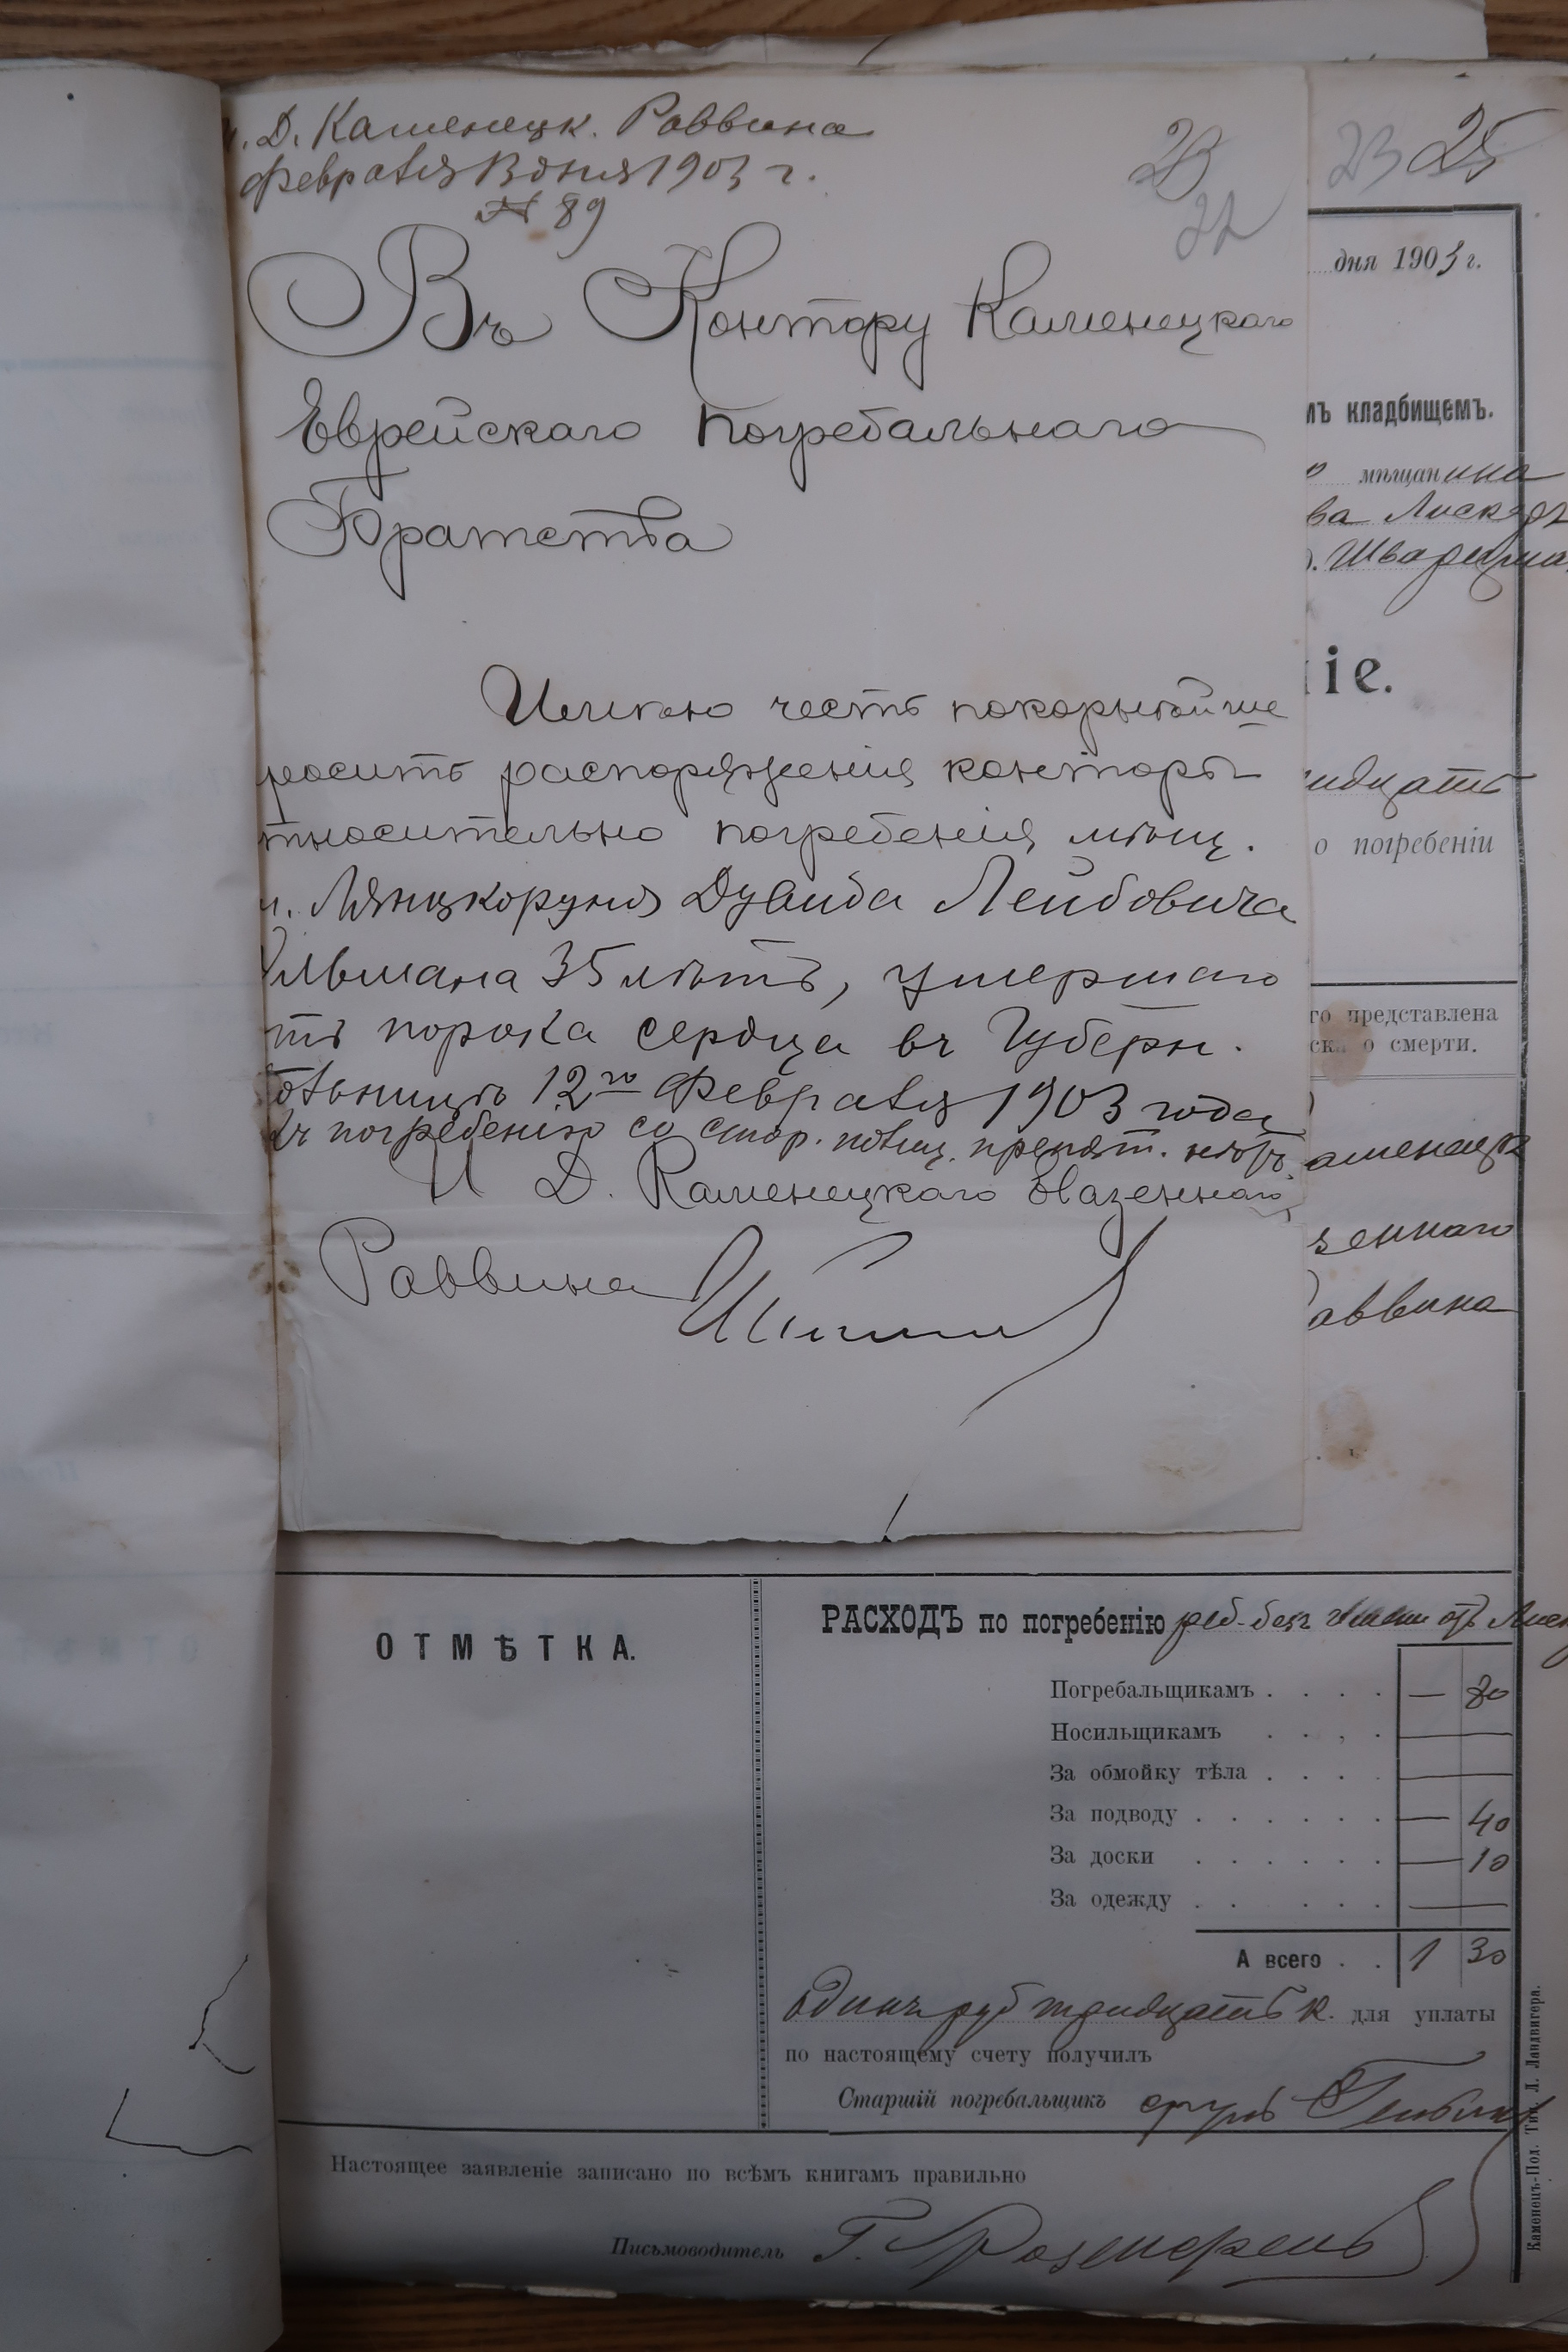 Д. Каменецк. Раввина
февраля 13 дня 1903 г.
№ 89
23
22
Въ Контору Каменецкаго
Еврейскаго Погребальнаго
Братства
Имѣю честь покорнѣйше
росить распоряженія конторы
тносительно погребенія мѣщ.
м. Лянцкоруня Дувида Лейбовича
льмана 35 лѣтъ, умершаго
тъ порока сердца въ Губерн.
больницѣ 12го Февраля 1903 года
къ погребенію со стор. полиц. препят. нѣтъ
И Д. Каменецкаго Казеннаго
Раввина
23 25
дня 1903 г.
мъ кладбищемъ.
о мѣщанина
ва
. Шварцма
іе.
идцать
о погребеніи
го представлена
ска о смерти.
аменецк
зеннаго
аввина
ОТМѢТКА.
РАСХОДЪ по погребенію реб. безъ имени отъ
Погребальщикамъ . . . . — 80
Носильщикамъ . . . . —
За обмойку тѣла . . . . —
За подводу . . . . . . — 40
За доски . . . . . . — 10
За одежду . . . . . . —
А всего . . 1 30
Одинъ руб тридцать к. для уплаты
по настоящему счету получилъ
Старшій погребальщикъ
Настоящее заявленіе записано по всѣмъ книгамъ правильно
Письмоводитель Г.
Каменецъ-Под. Тип. Л. Ландвигера.